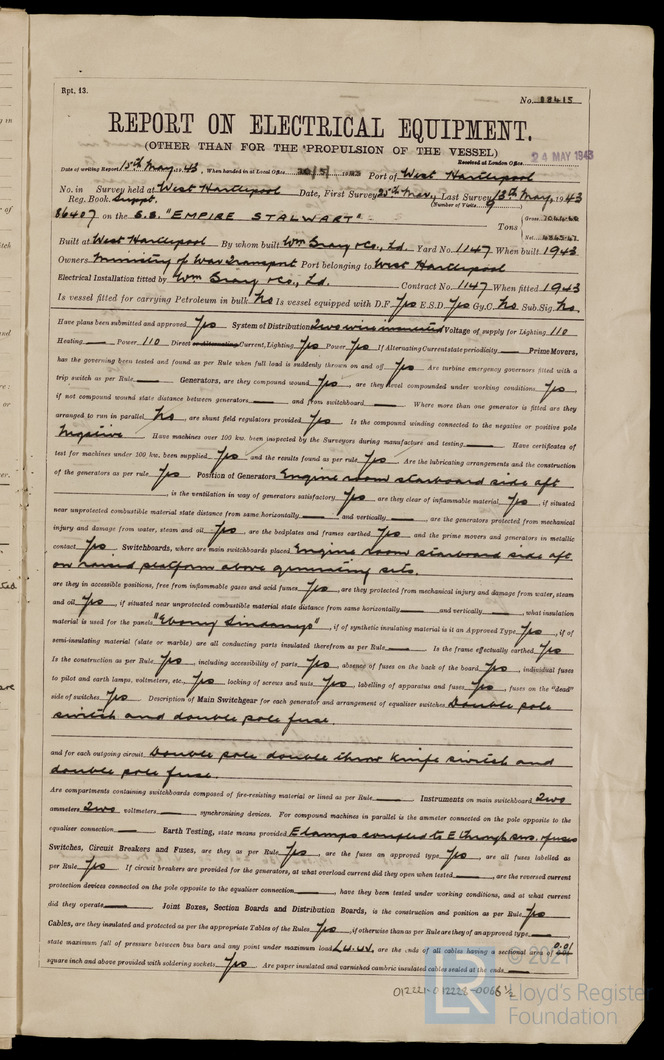 Rpt. 13.
No. 88415
REPORT ON ELECTRICAL EQUIPMENT.
(OTHER THAN FOR THE PROPULSION OF THE VESSEL)
Received at London Office
24 MAY 1943
Date of writing Report 15th May 1943, When handed in at Local Office 1943 Port of West Hartlepool
No. in Survey held at West Hartlepool Date, First Survey 25th Mar., Last Survey 13th May, 1943
Reg. Book. Suppt. (Number of Visits 9)
86407 on the S.S. "EMPIRE STALWART" Tons Gross Net
Built at West Hartlepool By whom built Wm Gray & Co., Ld. Yard No. 1147 When built 1943
Owners Ministry of War Transport Port belonging to West Hartlepool
Electrical Installation fitted by Wm Gray & Co., Ld. Contract No. 1147 When fitted 1943
Is vessel fitted for carrying Petroleum in bulk No Is vessel equipped with D.F. Yes E.S.D. Yes Gy.C. No Sub.Sig. No.
Have plans been submitted and approved Yes System of Distribution Two wire insulated Voltage of supply for Lighting 110
Heating — Power 110 Direct or Alternating Current, Lighting Yes Power Yes If Alternating Current state periodicity — Prime Movers,
has the governing been tested and found as per Rule when full load is suddenly thrown on and off Yes Are turbine emergency governors fitted with a
trip switch as per Rule — Generators, are they compound wound Yes, are they level compounded under working conditions Yes,
if not compound wound state distance between generators — and from switchboard — Where more than one generator is fitted are they
arranged to run in parallel No, are shunt field regulators provided Yes Is the compound winding connected to the negative or positive pole
Negative Have machines over 100 kw. been inspected by the Surveyors during manufacture and testing — Have certificates of
test for machines under 100 kw. been supplied Yes and the results found as per rule Yes Are the lubricating arrangements and the construction
of the generators as per rule Yes Position of Generators Engine room starboard side aft
, is the ventilation in way of generators satisfactory Yes are they clear of inflammable material Yes, if situated
near unprotected combustible material state distance from same horizontally — and vertically —, are the generators protected from mechanical
injury and damage from water, steam and oil Yes, are the bedplates and frames earthed Yes and the prime movers and generators in metallic
contact Yes Switchboards, where are main switchboards placed Engine room starboard side aft
on raised platform above generating sets.
are they in accessible positions, free from inflammable gases and acid fumes Yes, are they protected from mechanical injury and damage from water, steam
and oil Yes, if situated near unprotected combustible material state distance from same horizontally — and vertically —, what insulation
material is used for the panels "Ebony Sindanyo", if of synthetic insulating material is it an Approved Type Yes, if of
semi-insulating material (slate or marble) are all conducting parts insulated therefrom as per Rule — Is the frame effectually earthed Yes
Is the construction as per Rule Yes, including accessibility of parts Yes, absence of fuses on the back of the board Yes, individual fuses
to pilot and earth lamps, voltmeters, etc. Yes, locking of screws and nuts Yes, labelling of apparatus and fuses Yes, fuses on the "dead"
side of switches Yes Description of Main Switchgear for each generator and arrangement of equaliser switches Double pole
switch and double pole fuse.
and for each outgoing circuit Double pole double throw knife switch and
double pole fuse.
Are compartments containing switchboards composed of fire-resisting material or lined as per Rule — Instruments on main switchboard Two
ammeters Two voltmeters — synchronising devices. For compound machines in parallel is the ammeter connected on the pole opposite to the
equaliser connection — Earth Testing, state means provided E lamps coupled to E through sws. & fuses
Switches, Circuit Breakers and Fuses, are they as per Rule Yes, are the fuses an approved type Yes, are all fuses labelled as
per Rule Yes If circuit breakers are provided for the generators, at what overload current did they open when tested —, are the reversed current
protection devices connected on the pole opposite to the equaliser connection —, have they been tested under working conditions, and at what current
did they operate — Joint Boxes, Section Boards and Distribution Boards, is the construction and position as per Rule Yes
Cables, are they insulated and protected as per the appropriate Tables of the Rules Yes, if otherwise than as per Rule are they of an approved type —,
state maximum fall of pressure between bus bars and any point under maximum load, are the ends of all cables having a sectional area of 0.01
square inch and above provided with soldering sockets Yes Are paper insulated and varnished cambric insulated cables sealed at the ends —
012221-012228-0066 1/2
© 2021
LR
Lloyd's Register
Foundation